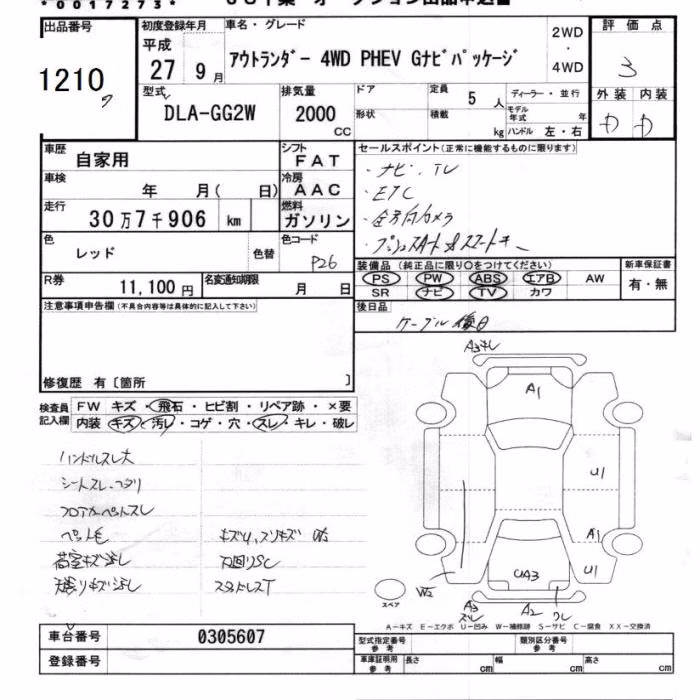 *0017273*
出品番号
1210
初度登録年月
平成
27 9月
車名・グレード
アウトランダー 4WD PHEV Gナビパッケージ
2WD
・
4WD
評価点
3
型式
DLA-GG2W
排気量
2000
CC
ドア
形状
定員
5人
積載
kg
ディーラー・並行
モデル年式 年
ハンドル 左・右
外装 内装
車歴
自家用
シフト
FAT
車検
年 月( 日)
冷房
AAC
走行
30万7千906 km
燃料
ガソリン
色
レッド
色替
色コード
P26
R券
11,100円
名変通知期限
月 日
セールスポイント(正常に機能するものに限ります)
・ナビ、TV
・ETC
・全方向カメラ
装備品(純正品に限り〇をつけてください)
PS PW ABS エアB AW
SR ナビ TV カワ
新車保証書
有・無
後日品
ケーブル後日
注意事項申告欄(不具合内容等は具体的に記入して下さい)
修復歴 有〔箇所 〕
検査員
記入欄
FW キズ・飛石・ヒビ割・リペア跡・×要
内装 キズ・汚レ・コゲ・穴・スレ・キレ・破レ
ハンドルスレ大
シートスレ
フロアカーペットスレ
ペット毛
荷室キズ汚レ
天張りキズ汚レ
下回りSC
スタッドレスT
A1
U1
A1
U1
UA3
W2
A3
スレ
A2
ワレ
スペア
A-キズ E-エクボ U-凹み W-補修跡 S-サビ C-腐食 XX-交換済
車台番号
0305607
登録番号
型式指定番号
参考
類別区分番号
参考
車庫証明用
参考
長さ cm
幅 cm
高さ cm